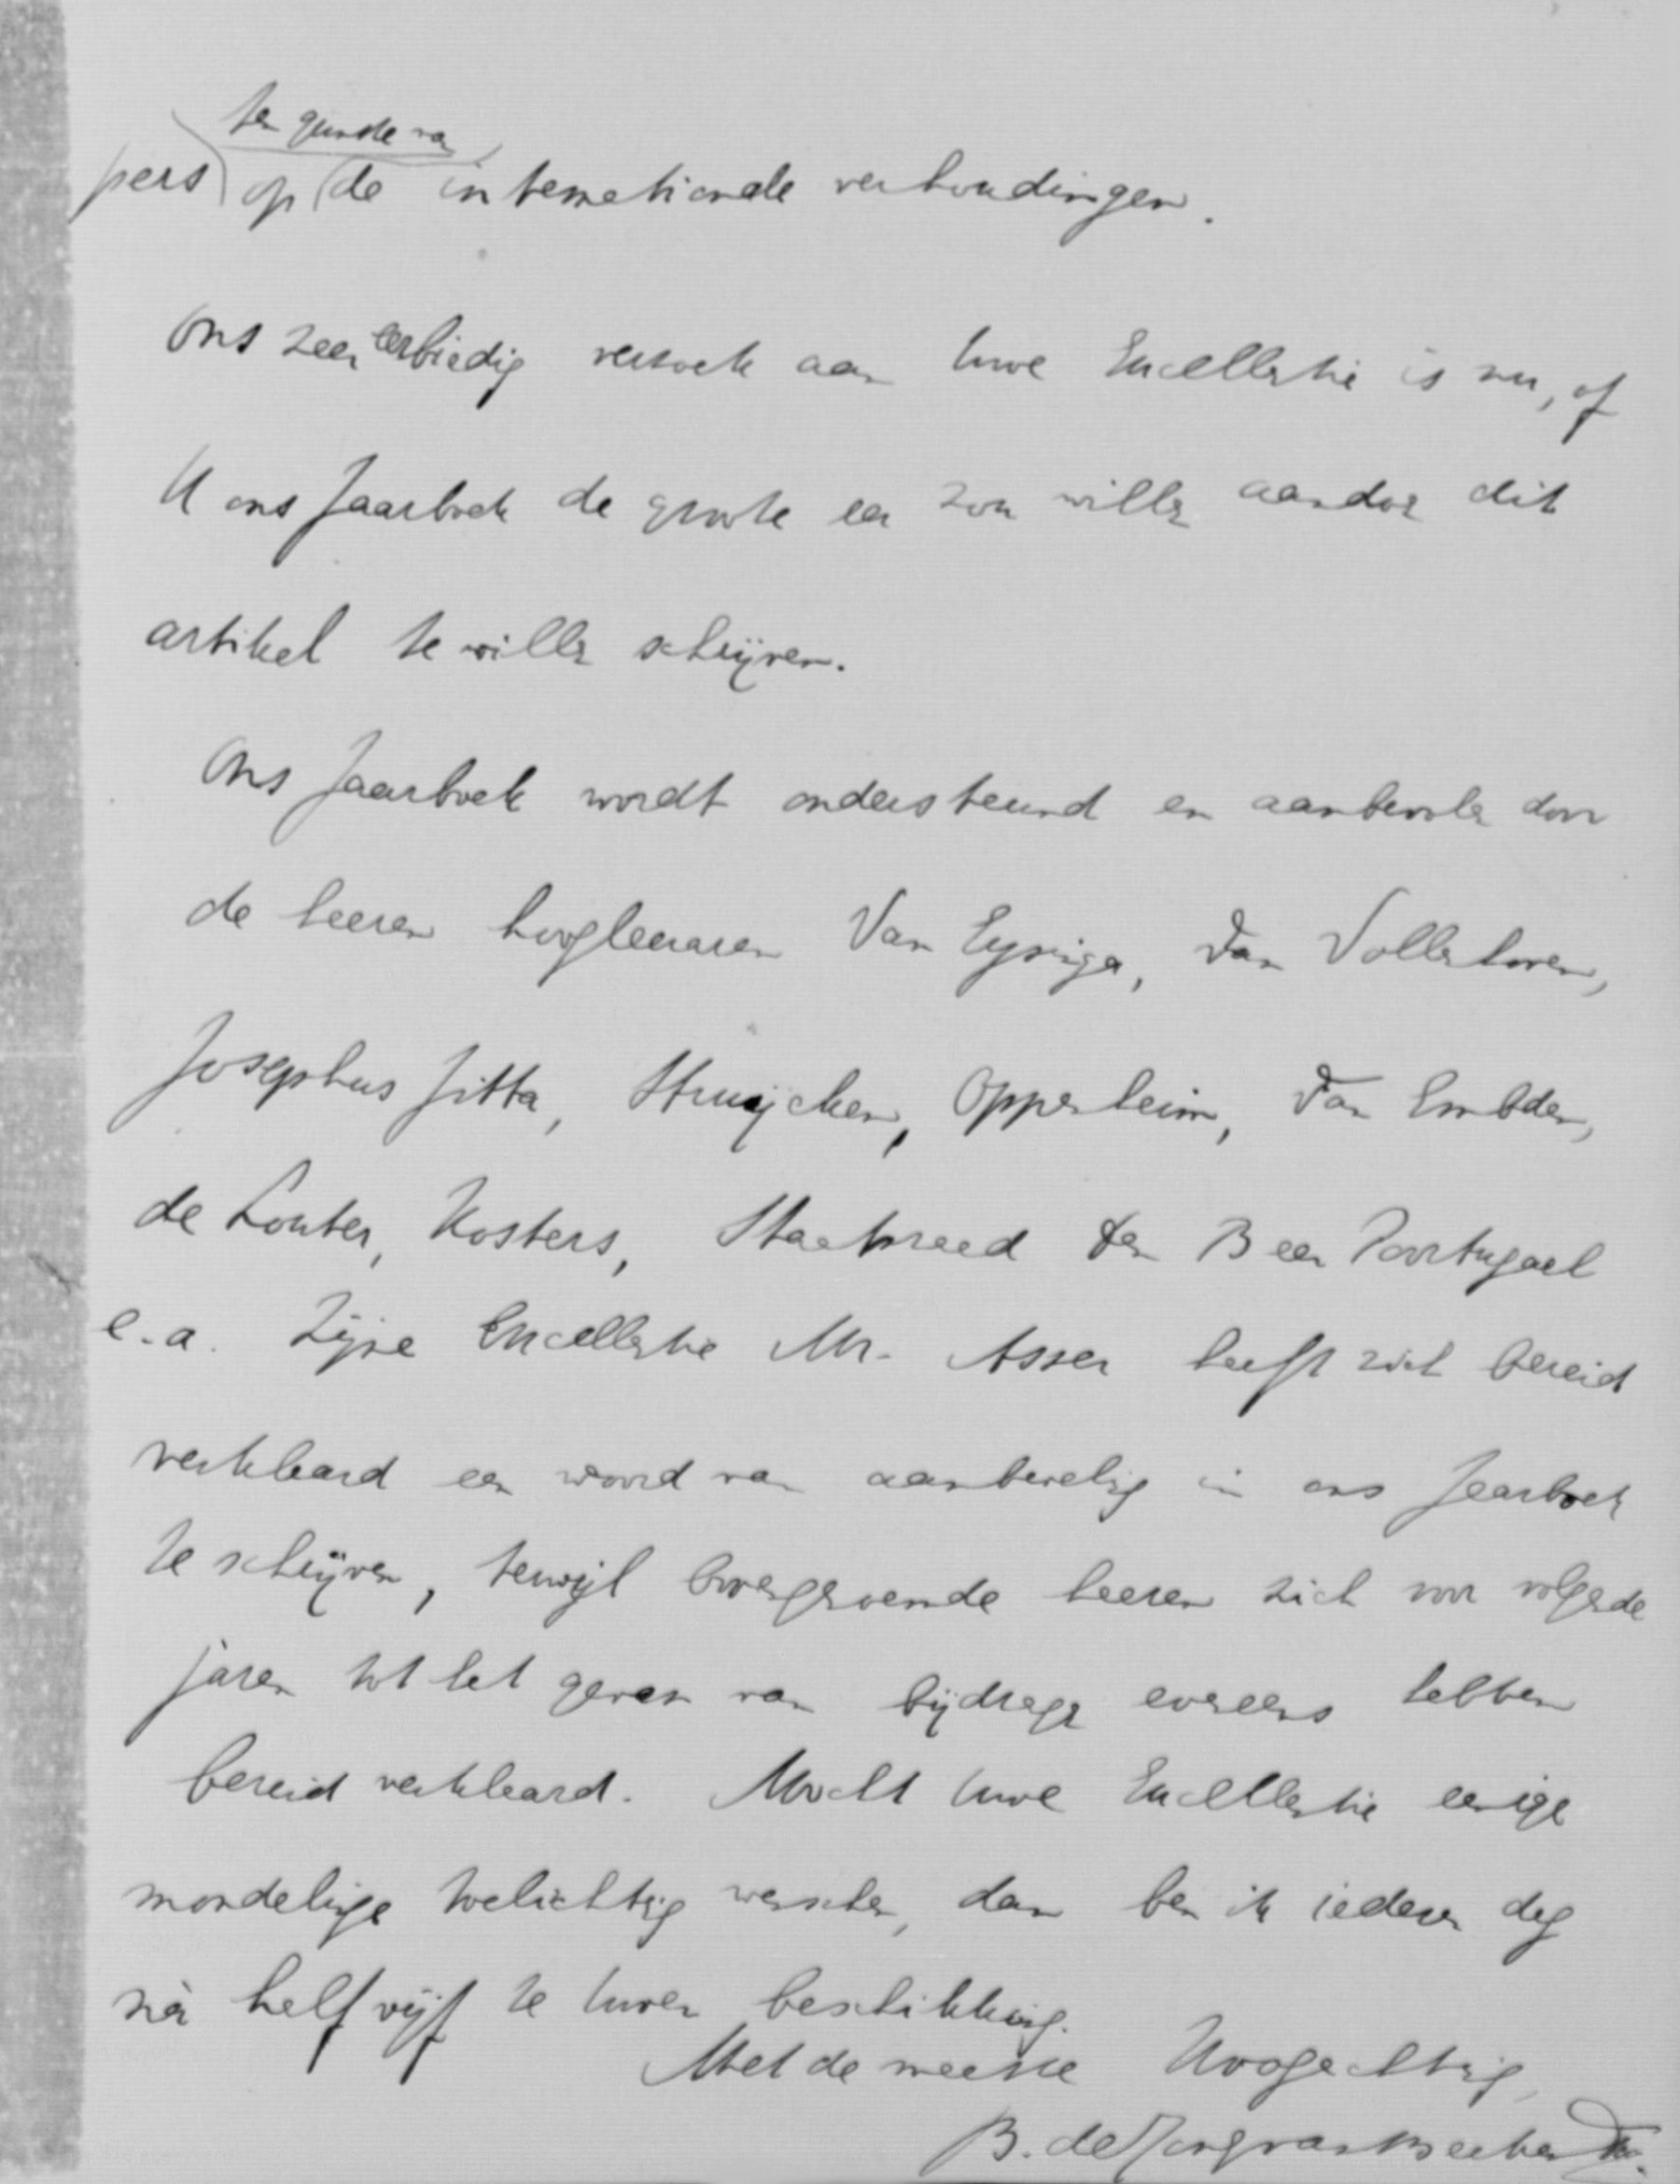 ten gunste van
pers op de internationale verhoudingen.
Ons zeer eerbiedig verzoek aan Uwe Excellentie is nu, of
U ons Jaarboek de groote eer zou willen aandoen dit
artikel te willen schrijven.
Ons Jaarboek wordt ondersteund en aanbevolen door
de heeren hoogleeraren Van Eysinga, Van Vollenhoven,
Josephus Jitta, Struycken, Oppenheim, Van Embden,
de Louter, Kosters, Staatsraad den Beer Poortugael
e.a. Zijne Excellentie Mr. Asser heeft zich bereid
verklaard een woord van aanbeveling in ons Jaarboek
te schrijven, terwijl bovengenoemde heeren zich voor volgende
jaren tot het geven van bijdragen eveneens hebben
bereid verklaard. Mocht Uwe Excellentie eenige
mondelinge toelichting wenschen, dan ben ik iederen dag
ná half vijf te Uwer beschikking.
Met de meeste Hoogachting,
B. de Jong van Beek en Donk.